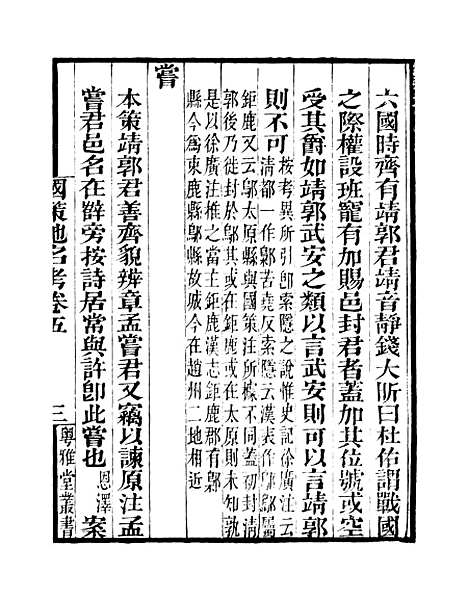 六國時齊有靖郭君靖音靜錢大昕曰杜佑謂戰國
之際權設班寵有加賜邑封君者蓋加其位號或空
受其爵如靖郭武安之類以言武安則可以言靖郭
則不可
按考異所引卽索隱之說惟史記徐廣注云
清郻一作郻苦堯反索隱云漢表作郻屬
鉅鹿又云郻太原縣與國策注所據不同蓋初封清
郭後乃徙封於郻其或在鉅鹿或在太原則未知孰
是以徐廣注推之當主鉅鹿漢志鉅鹿郡有郻
縣今爲束鹿縣郻縣故城今在趙州二地相近
嘗
本策靖郭君善齊貌辨章孟嘗君又竊以諫原注孟
嘗君邑名在薛旁按詩居常與許卽此嘗也恩澤案
國策地名考卷五 三 粵雅堂叢書